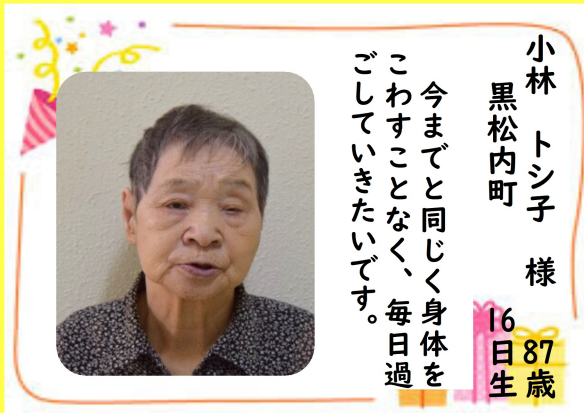 小林　トシ子　様　87歳
黒松内町　16日生
今までと同じく身体を
こわすことなく、毎日過
ごしていきたいです。